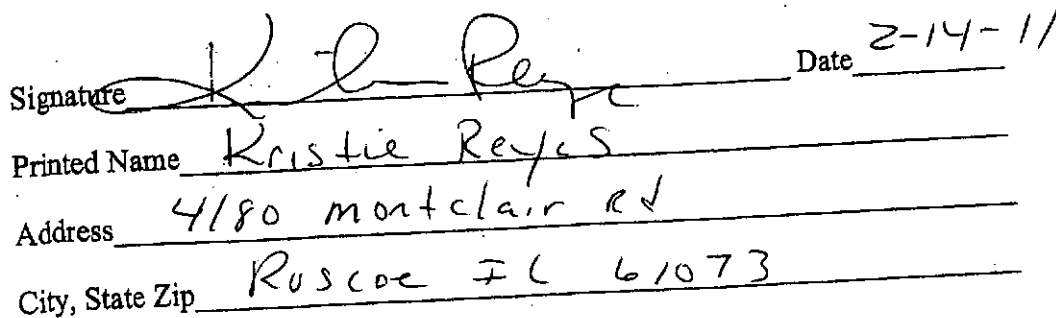 Signature Kristie Reyes Date 2-14-11
Printed Name Kristie Reyes
Address 4180 montclair Rd
City, State Zip Roscoe IL 61073